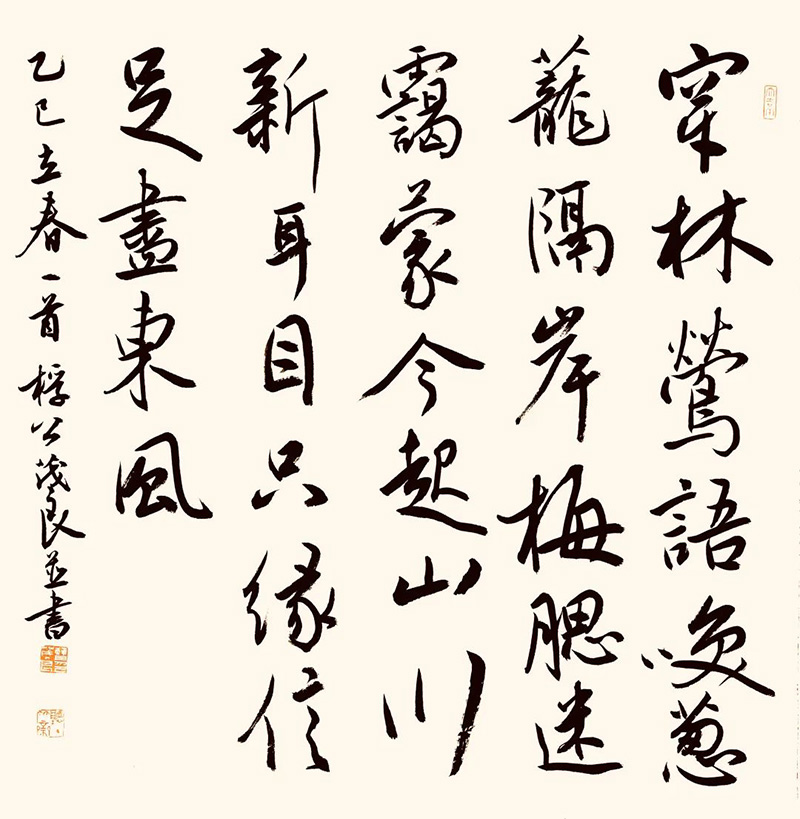 穿林鶯語喚蔥
蘢隔岸梅腮迷
靄蒙今起山川
新耳目只緣信
足盡東風
乙巳立春一首 桴公茂良並書